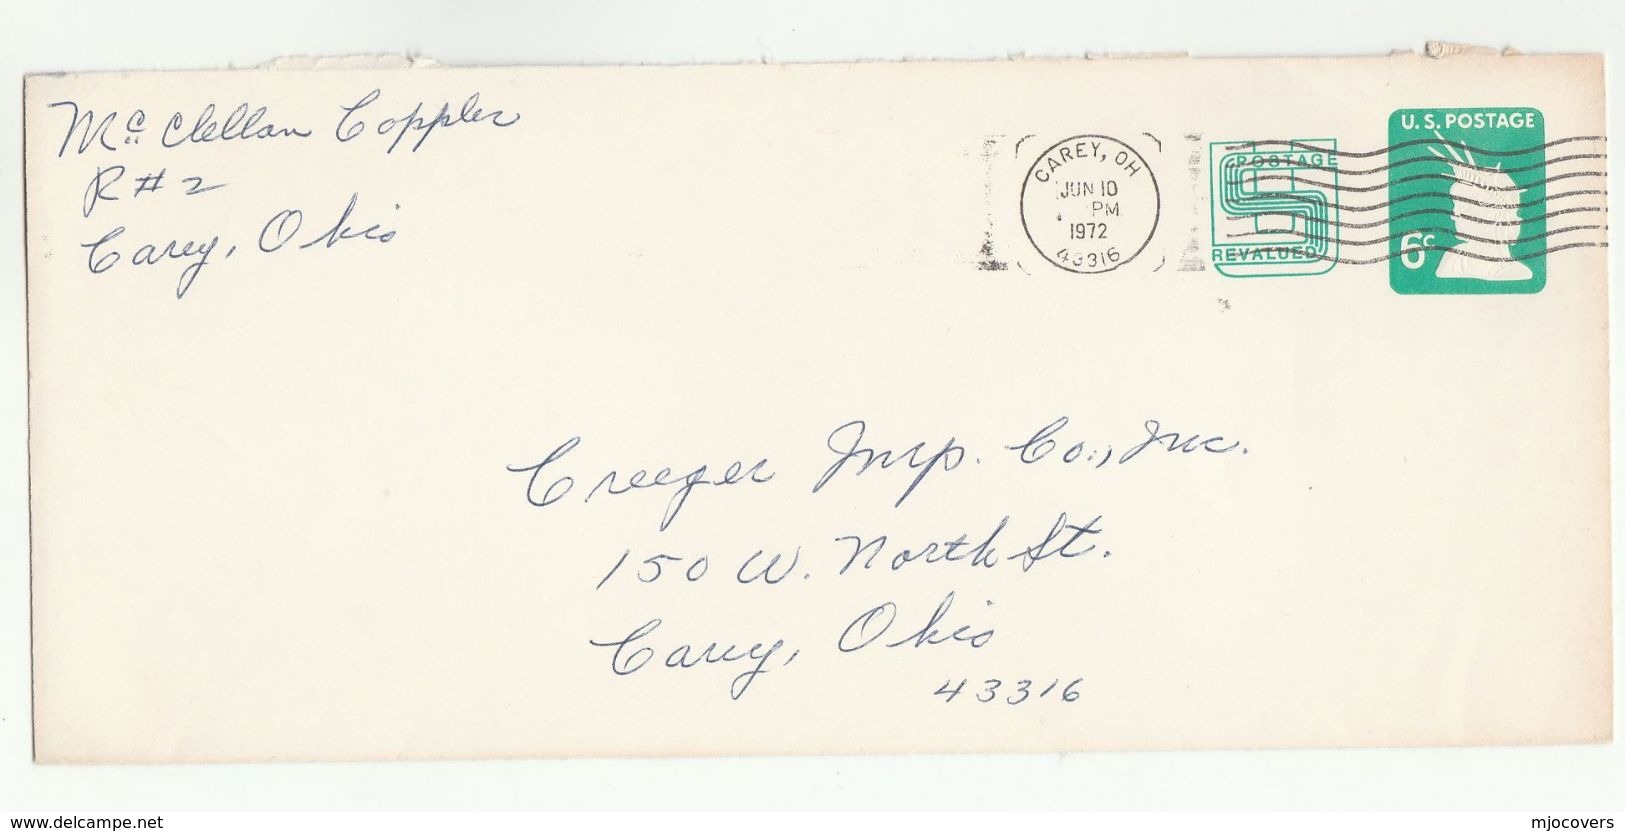 Mc Clellan Coppler
R#2
Carey, Ohio
CAREY, OH
JUN 10
PM
1972
43316
POSTAGE
REVALUED
U.S. POSTAGE
6c
Creeger Imp. Co., Inc.
150 W. North St.
Carey, Ohio
43316
www.delcampe.net
mjocovers